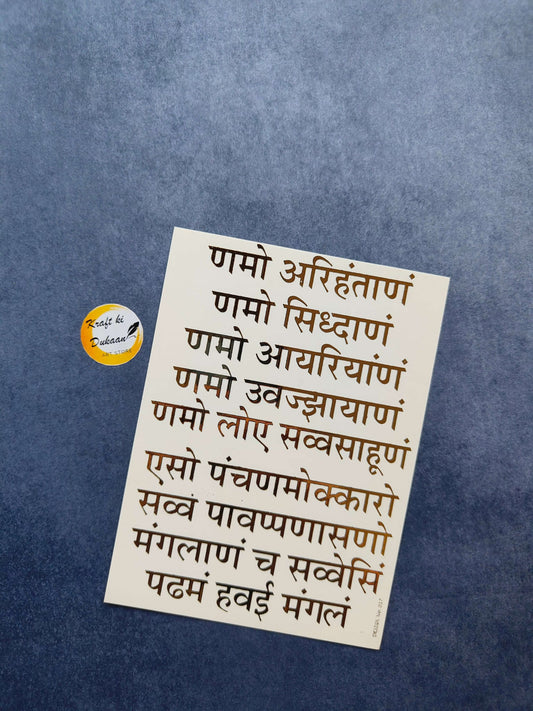 Kraft ki
Dukaan
ART STORE
णमो अरिहंताणं
णमो सिध्दाणं
णमो आयरियांणं
णमो उवज्झायाणं
णमो लोए सव्वसाहूणं
एसो पंचणमोक्कारो
सव्वं पावप्पणासणो
मंगलाणं च सव्वेसिं
पढमं हवई मंगलं